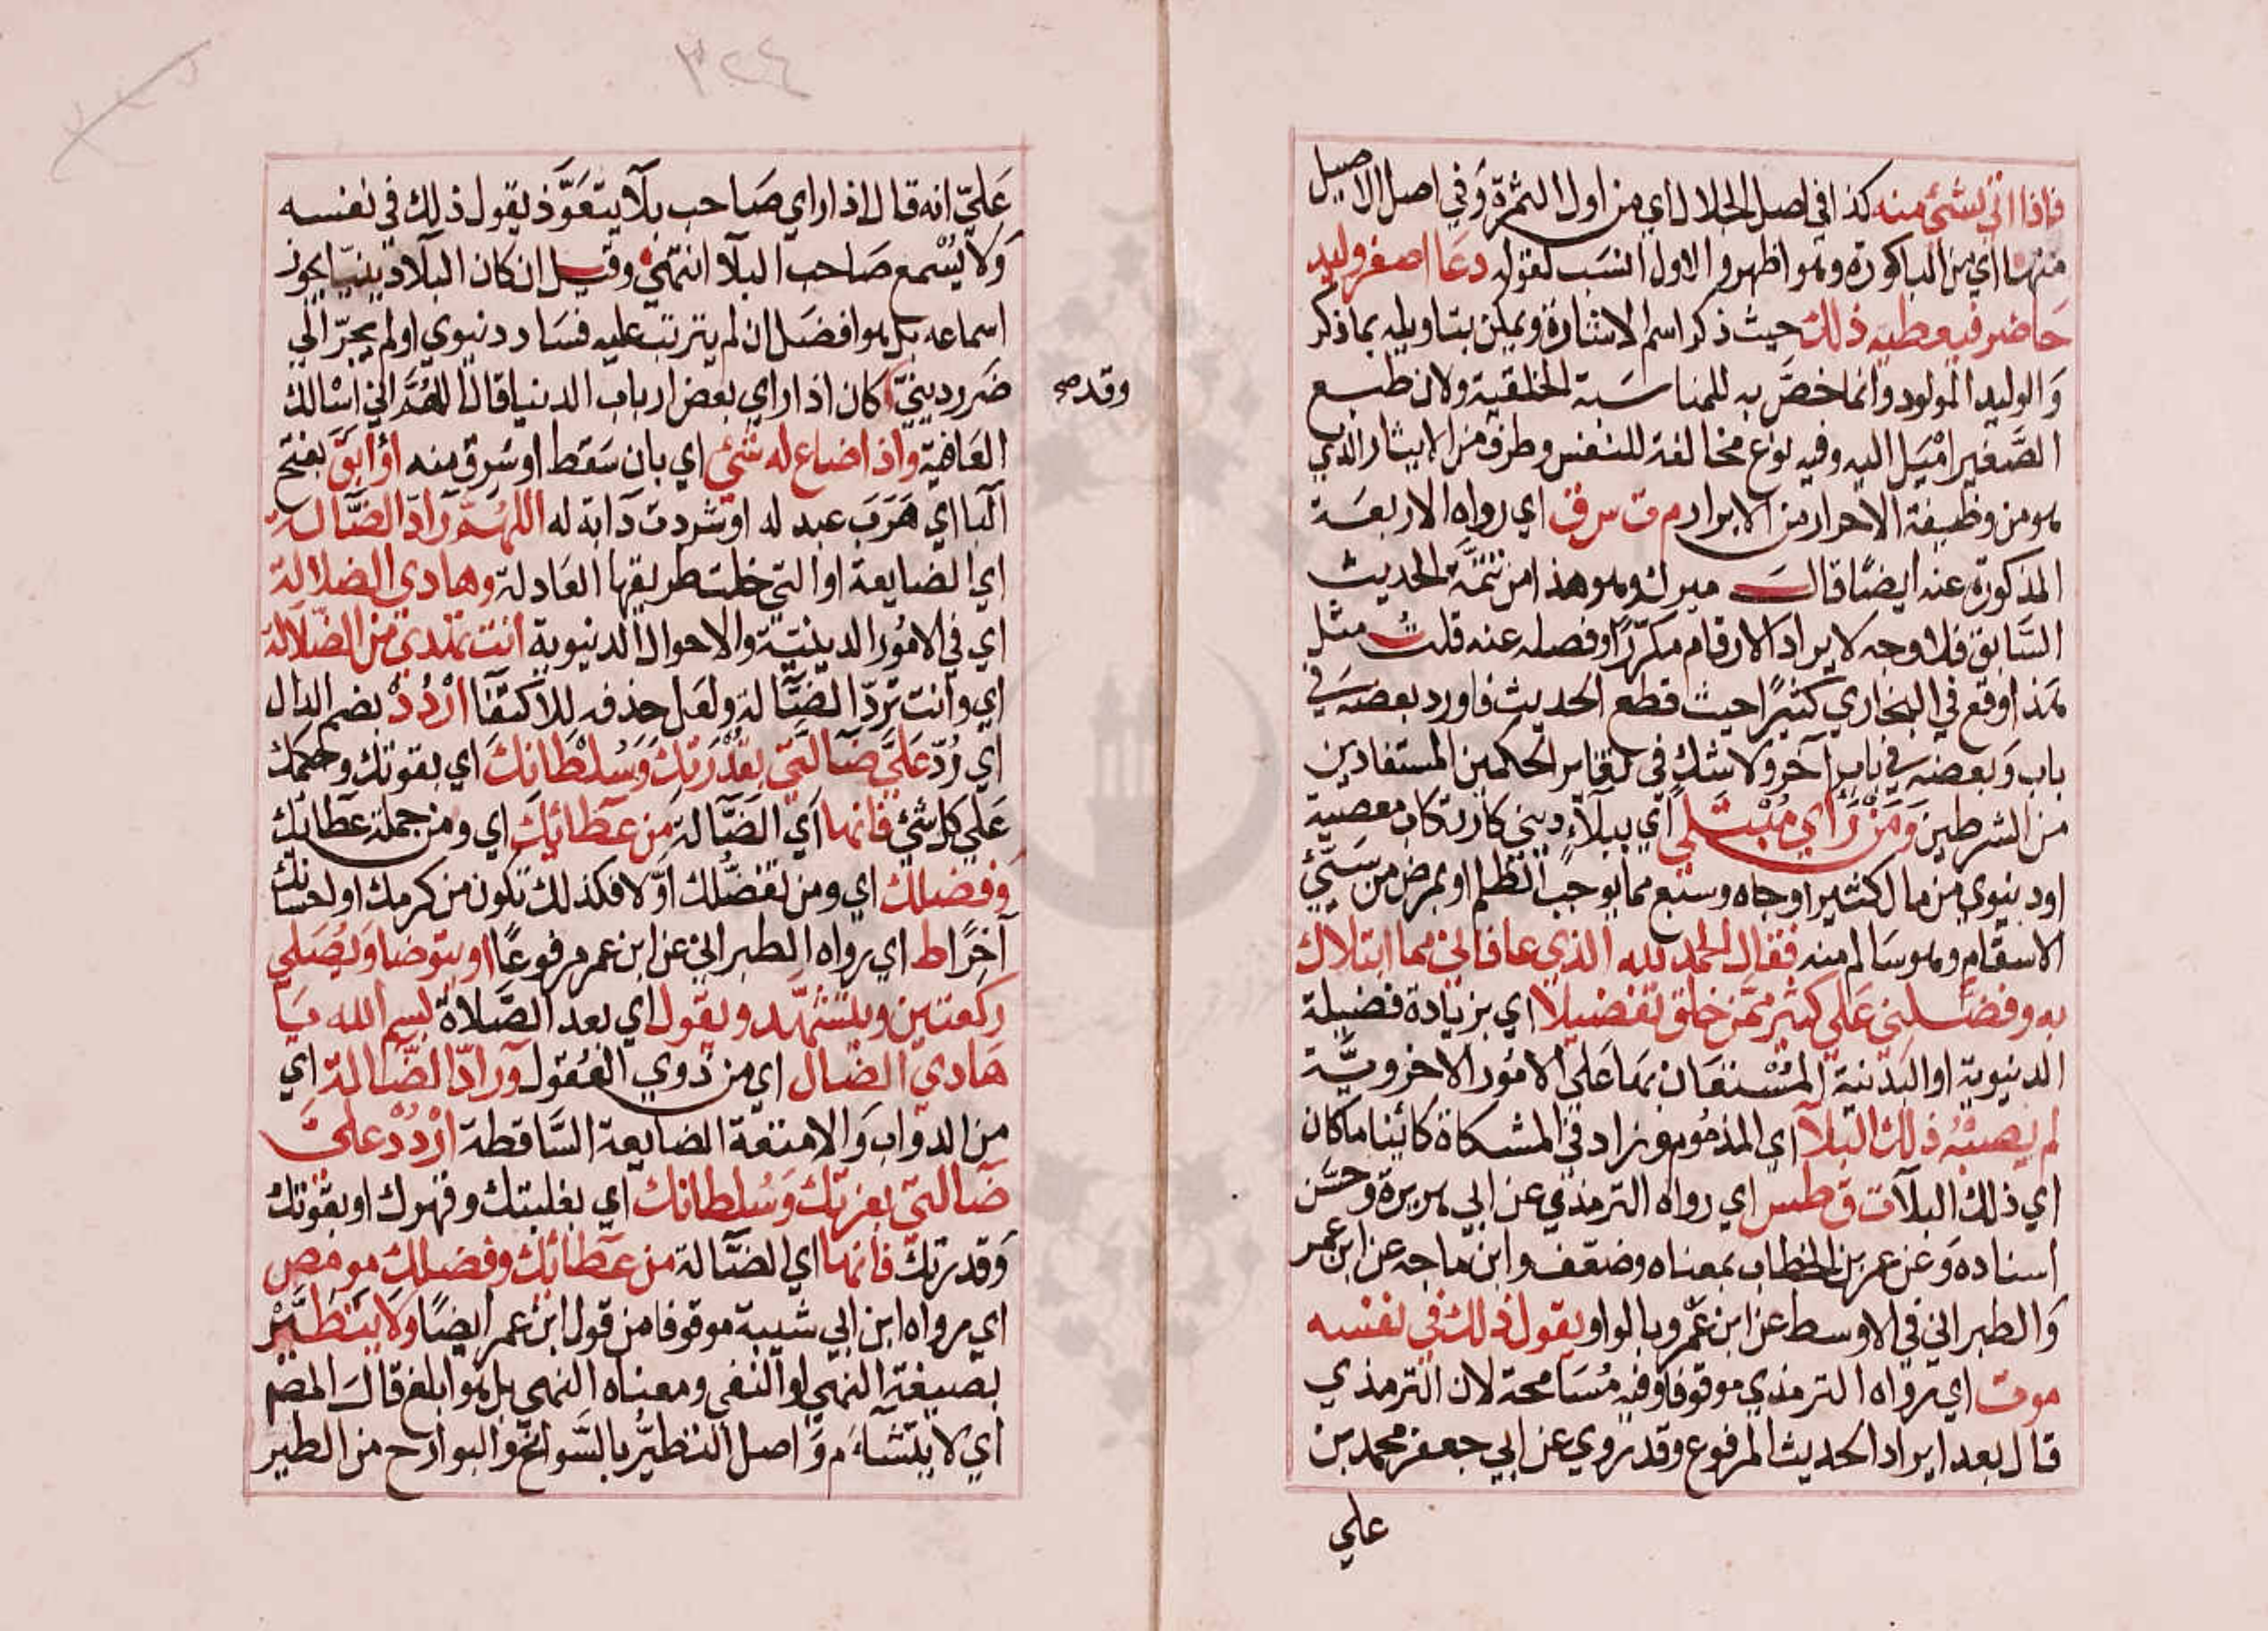 فاذا اتي بشيء منه كذا في اصل الجلال اي من اول الثمرة وفي اصل الاصيل
منها اي من الباكورة وهو اظهر والاول انسب لقوله دعا اصغر وليد
حاضر فيعطيه ذلك حيث ذكر اسم الاشارة ويمكن بتاويله بما ذكر
والوليد المولود وانما خص به للمناسبة الخلقية ولان طبع
الصغير اميل اليه وفيه نوع مخالفة للنفس وطرف من الايثار الذي
هو من وظيفة الاحرار من الابرار م ت س ق اي رواه الاربعة
المذكورة عنه ايضا قال ميرك وهو هذا من تتمة الحديث
السابق فلا وجه لايراد الارقام مكررا وفصله عنه قلت مثل
هذا وقع في البخاري كثيرا حيث قطع الحديث فاورد بعضه في
باب وبعضه في باب آخر ولا شك في تغاير الحكمين المستفادين
من الشرطين ومن راي مبتلي اي ببلاء ديني كارتكاب معصية
او دنيوي من مال كثير او جاه وسيع مما يوجب الظلم او بمرض من سيئ
الاسقام وهو سالم منه فقال الحمد لله الذي عافاني مما ابتلاك
به وفضلني علي كثير ممن خلق تفضيلا اي بزيادة فضيلة
الدنيوية او البدنية المستعان بها علي الامور الاخروية
لم يصبه ذلك البلآ اي المذموم وزاد في المشكاة كائنا ما كان
اي ذلك البلآ ت ق طس اي رواه الترمذي عن ابي هريرة وحسن
اسناده وعن عمر بن الخطاب بمعناه وضعف وابن ماجه عن ابن عمر
والطبراني في الاوسط عن ابن عمرو بالواو يقول ذلك في نفسه
موت اي رواه الترمذي موقوفا وفيه مسامحة لان الترمذي
قال بعد ايراد الحديث المرفوع وقد روي عن ابي جعفر محمد بن
علي
٣٢٤
علي انه قال اذا راي صاحب بلآ يتعوذ يقول ذلك في نفسه
ولا يسمع صاحب البلآ انتهي وقيل ان كان البلآ دينيا يجوز
اسماعه بل هو افضل ان لم يترتب عليه فساد دنيوي اولم يجر الي
ضرر ديني كان اذا راي بعض ارباب الدنيا قال اللهم اني اسالك
وقد صح
العافية واذا ضاع له شيء اي بان سقط او سرق منه او ابق بفتح
البا اي هرب عبد له او شردت دابة له اللهم راد الضالة
اي الضايعة او التي خلت طريقها العادلة وهادي الضلالة
اي في الامور الدينية والاحوال الدنيوية انت تهدي من الضلالة
اي وانت ترد الضالة ولعل حذفه للاكتفا اردد بضم الدال
اي رد علي ضالتي بقدرتك وسلطانك اي بقوتك وحكمك
علي كل شيء فانها اي الضالة من عطائك اي ومن جملة عطائك
وفضلك اي ومن تفضلك اولا فكذلك تكون من كرمك او احسانك
آخرا ط اي رواه الطبراني عن ابن عمر مرفوعا او يتوضا ويصلي
ركعتين ويتشهد ويقول اي بعد الصلاة بسم الله يا
هادي الضال اي من ذوي العقول وراد الضالة اي
من الدواب والامتعة الضايعة الساقطة اردد علي
ضالتي بعزتك وسلطانك اي بغلبتك وقهرك او بقوتك
وقدرتك فانها اي الضالة من عطائك وفضلك مو مص
اي رواه ابن ابي شيبة موقوفا من قول ابن عمر ايضا ولا يتطير
بصيغة النهي او النفي ومعناه النهي بل هو ابلغ قال المصم
اي لا يتشاءم واصل التطير بالسوانح والبوارح من الطير